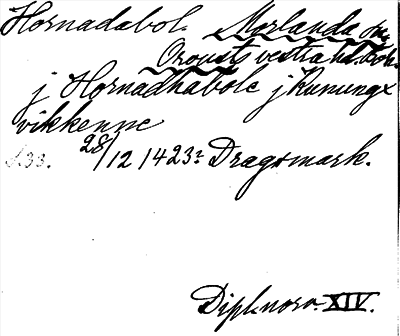 Hornadabol. Morlanda sn.
Orousts vestra hd. Boh.
j Hornadhabole j Kunungx
vikkenne
s. 33. 28/12 1423? Dragsmark.
Dipl. norv. XIV.